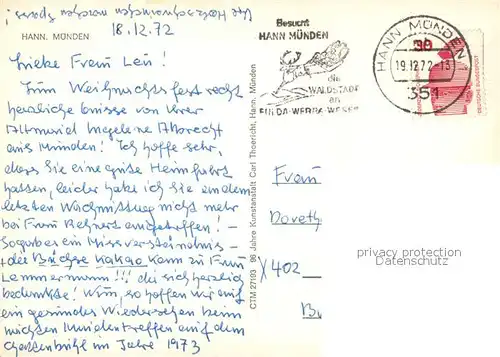 HANN. MÜNDEN
18.12.72
Liebe Frau Leu!
Zum Weihnachtsfest recht
herzliche Grüsse von Ihrer
Ingelene Albrecht
aus Münden! Ich hoffe sehr,
dass Sie eine gute Heimfahrt
hatten, leider habe ich Sie an dem
letzten Nachmittag nicht mehr
bei Frau angetroffen! –
So gab es ein Missverständnis –
die Büchse Kakao kam zu Frau
Lammermann!!! die sich herzlich
bedankte! Nun, so hoffen wir auf
ein gesundes Wiedersehen beim
nächsten Mündentreffen auf dem
im Jahre 1973
CTM 27193 96 Jahre Kunstanstalt Carl Thoericht, Hann. Münden
Besucht
HANN MÜNDEN
die
WALDSTADT
an
FULDA-WERRA-WESER
HANN MÜNDEN
19.12.72-13
351
30
DEUTSCHE BUNDESPOST
Frau
Doroth
402
privacy protection
Datenschutz